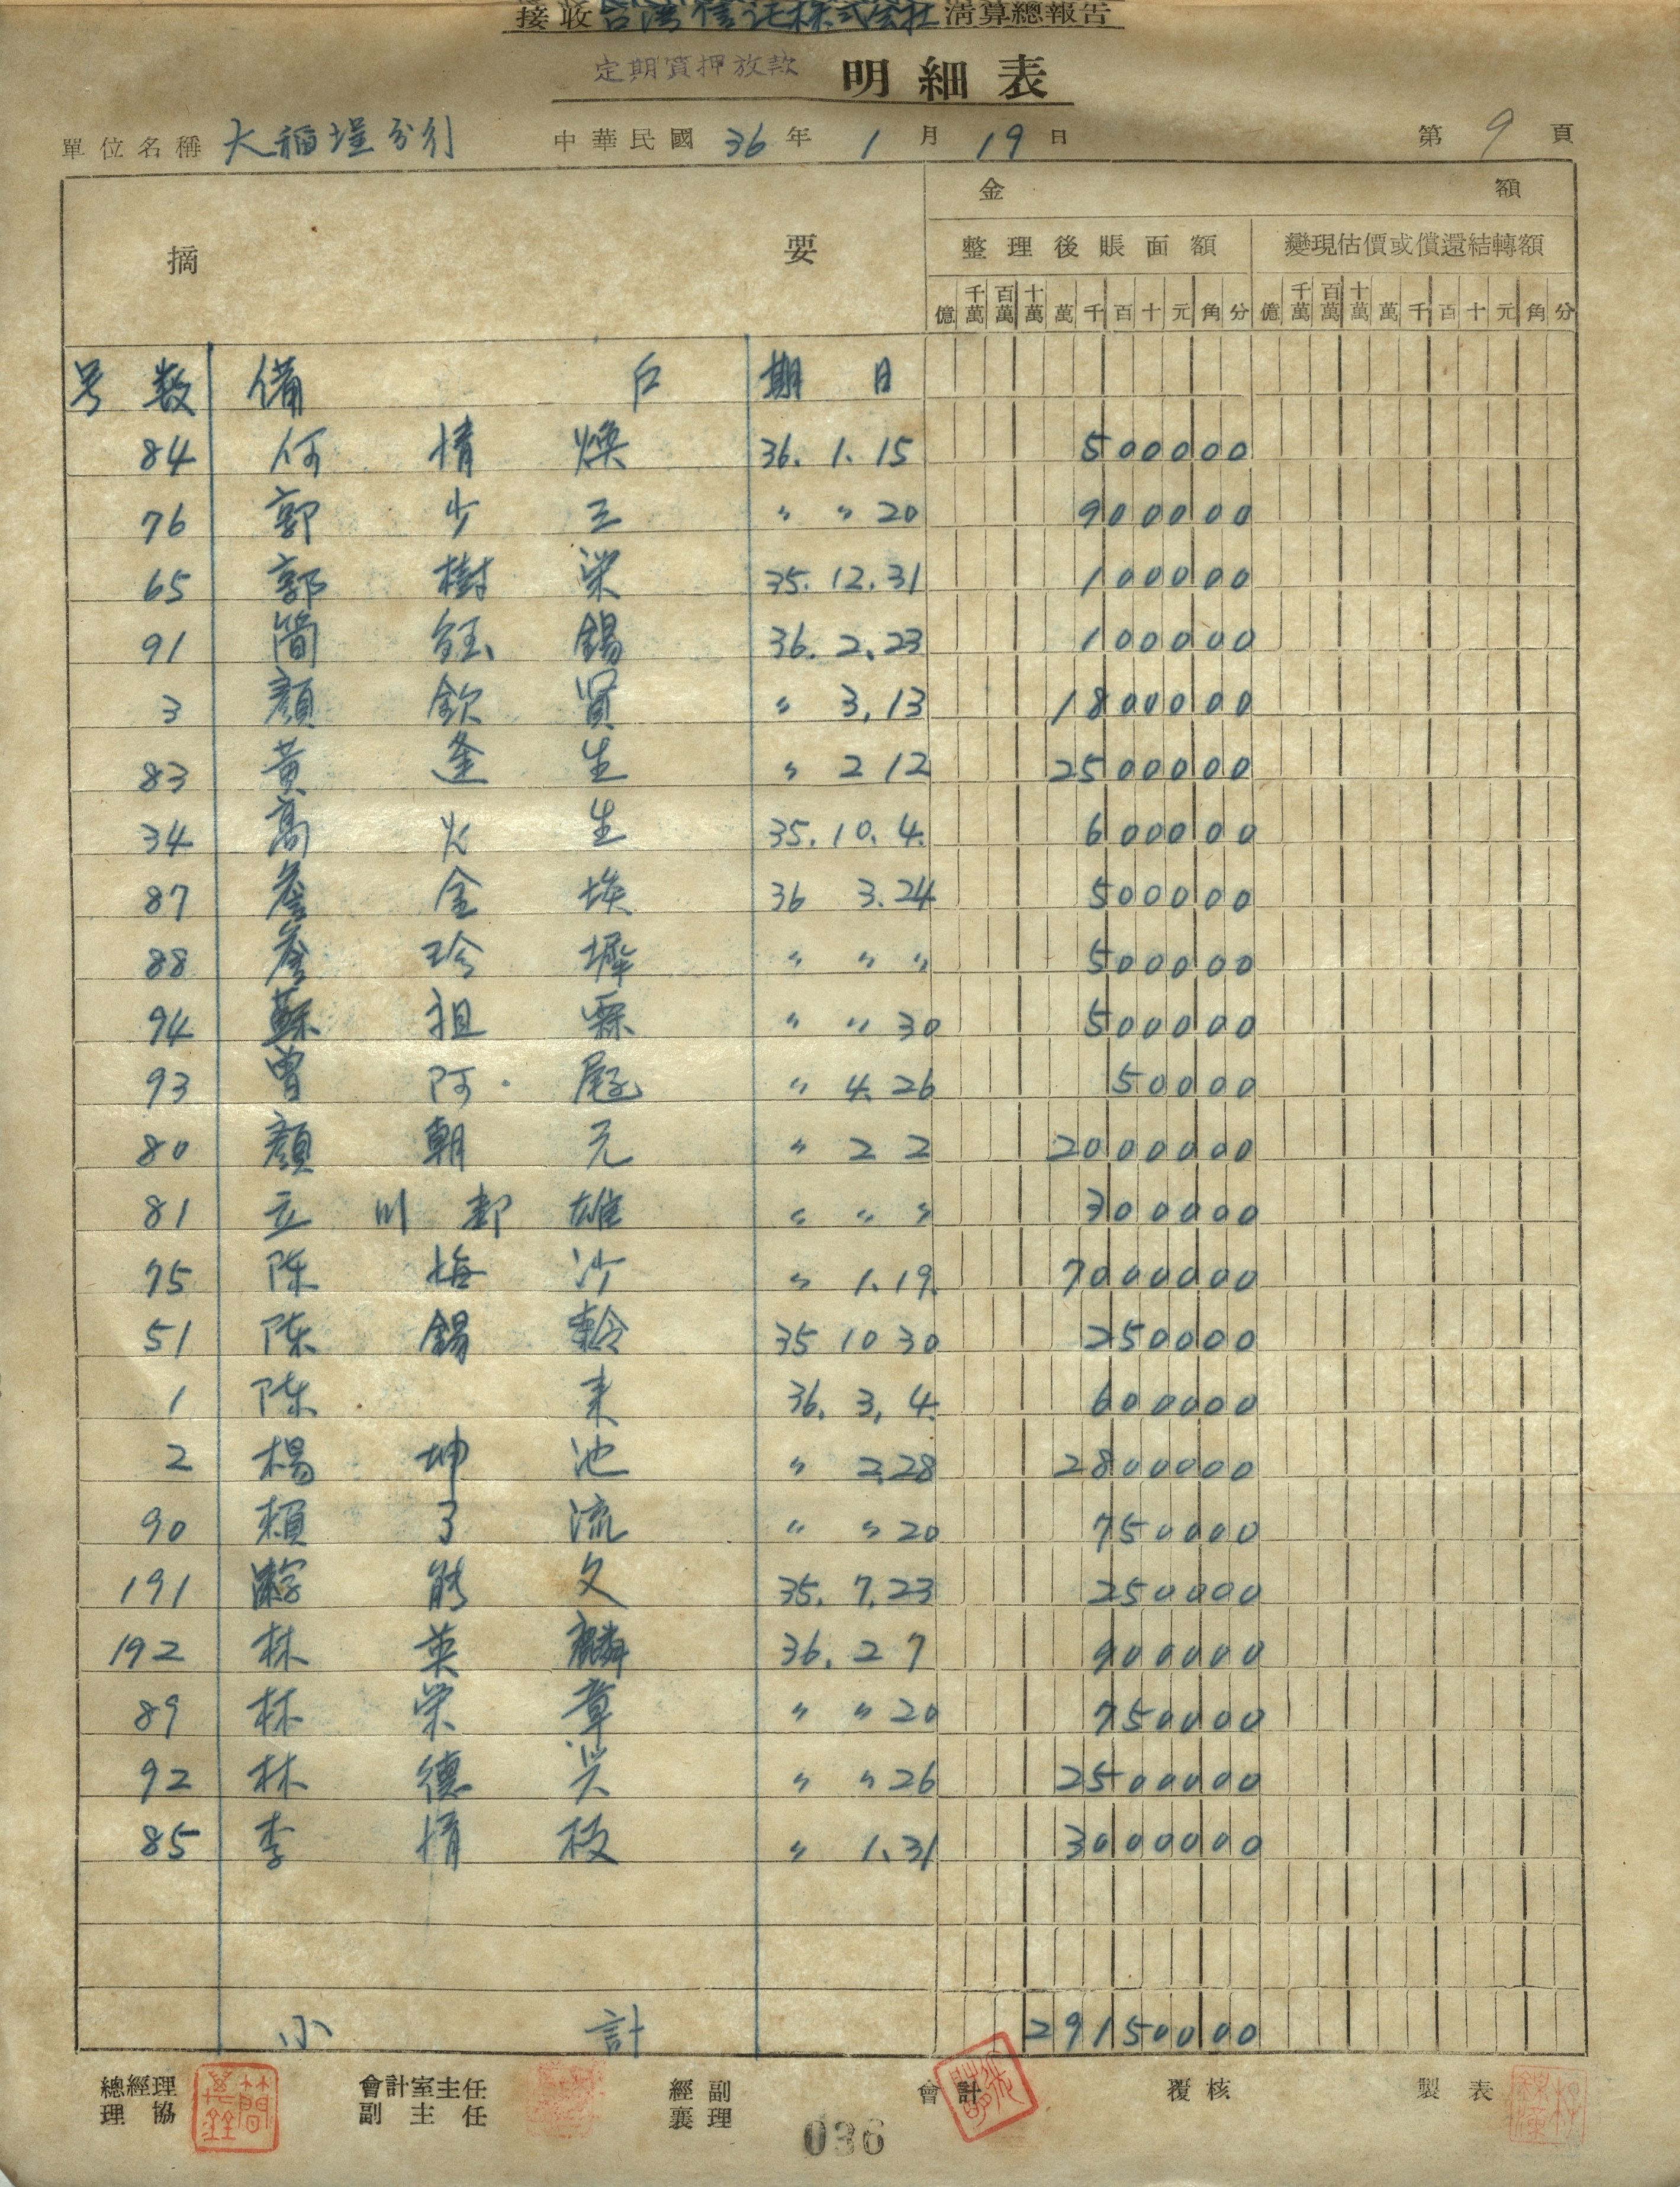 接收台灣信託株式会社清算總報告
定期質押放款 明細表
單位名稱 大稲埕分行 中華民國 36 年 1 月 19 日 第 9 頁
摘 要 金 額
整理後賬面額 變現估價或償還結轉額
億 千萬 百萬 十萬 萬 千 百 十 元 角 分 億 千萬 百萬 十萬 萬 千 百 十 元 角 分
号数 備 户 期日
84 何情煥 36. 1. 15 500000
76 郭少三 〃 〃 20 900000
65 郭樹栄 35. 12. 31 100000
91 簡鈺錫 36. 2. 23 100000
3 顏欽賢 〃 3, 13 1800000
83 黃逢生 〃 2 12 2500000
34 高火生 35. 10. 4. 600000
87 詹金埃 36 3. 24 500000
88 詹玲墀 〃 〃 〃 500000
94 蘇祖霖 〃 〃 30 500000
93 曾阿 〃 4. 26 50000
80 顏朝元 〃 2 2 2000000
81 立川郡雄 〃 〃 〃 300000
75 陈梅沙 〃 1. 19. 7000000
51 陈錫 35 10 30 250000
1 陈来 36. 3, 4. 600000
2 楊坤池 〃 2.28 2800000
90 賴了流 〃 〃 20 750000
191 能文 35. 7. 23 250000
192 林英麟 36. 2 7 900000
89 林栄章 〃 〃 20 750000
92 林德兴 〃 〃 26 2500000
85 李情枝 〃 1. 31 3000000
小計 29150000
總經理 會計室主任 經副 會計 覆核 製表
理協 副主任 襄理
036